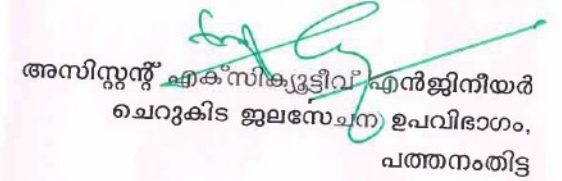 അസിസ്റ്റന്റ് എക്സിക്യൂട്ടീവ് എൻജിനീയർ
ചെറുകിട ജലസേചന ഉപവിഭാഗം,
പത്തനംതിട്ട